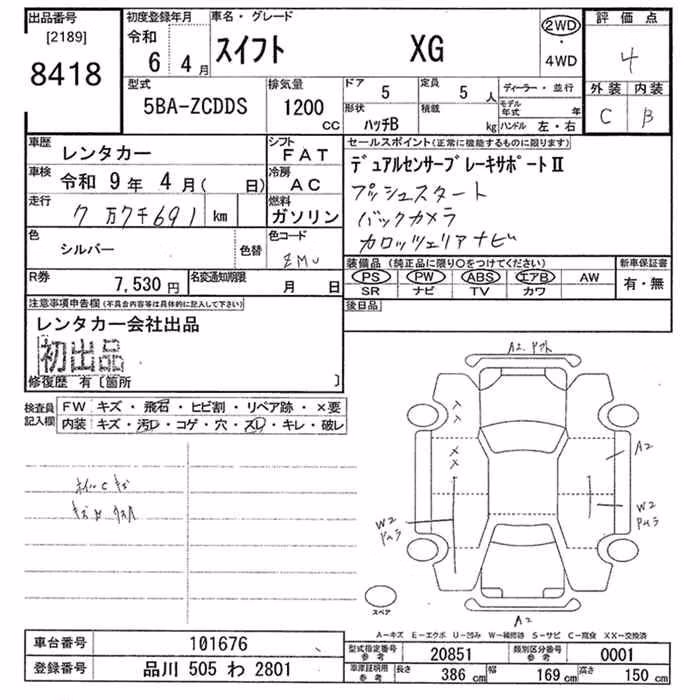 出品番号
[2189]
8418
初度登録年月
令和
6 4 月
車名・グレード
スイフト XG
2WD
・
4WD
評価点
4
外装 内装
C B
型式
5BA-ZCDDS
排気量
1200
CC
ドア
5
定員
5 人
形状
ハッチB
積載
kg
ディーラー・並行
モデル
年式 年
ハンドル 左・右
車歴
レンタカー
シフト
FAT
車検
令和 9 年 4 月( 日)
冷房
AC
走行
7万7千691 km
燃料
ガソリン
色
シルバー
色替
色コード
ZMU
R券
7,530 円
名変通知期限
月 日
セールスポイント(正常に機能するものに限ります)
デュアルセンサーブレーキサポートⅡ
プッシュスタート
バックカメラ
カロッツェリアナビ
装備品(純正品に限り○をつけてください)
PS PW ABS エアB AW
SR ナビ TV カワ
新車保証書
有・無
後日品
注意事項申告欄(不具合内容等は具体的に記入して下さい)
レンタカー会社出品
初出品
修復歴 有〔箇所 〕
検査員
記入欄
FW キズ・飛石・ヒビ割・リペア跡・×要
内装 キズ・汚れ・コゲ・穴・スレ・キレ・破レ
A2
A2
W2
W2
A2
スペア
A-キズ E-エクボ U-凹み W-補修跡 S-サビ C-腐食 XX-交換済
車台番号
101676
登録番号
品川 505 わ 2801
型式指定番号
参考
20851
類別区分番号
参考
0001
車庫証明用
参考
長さ
386 cm
幅
169 cm
高さ
150 cm